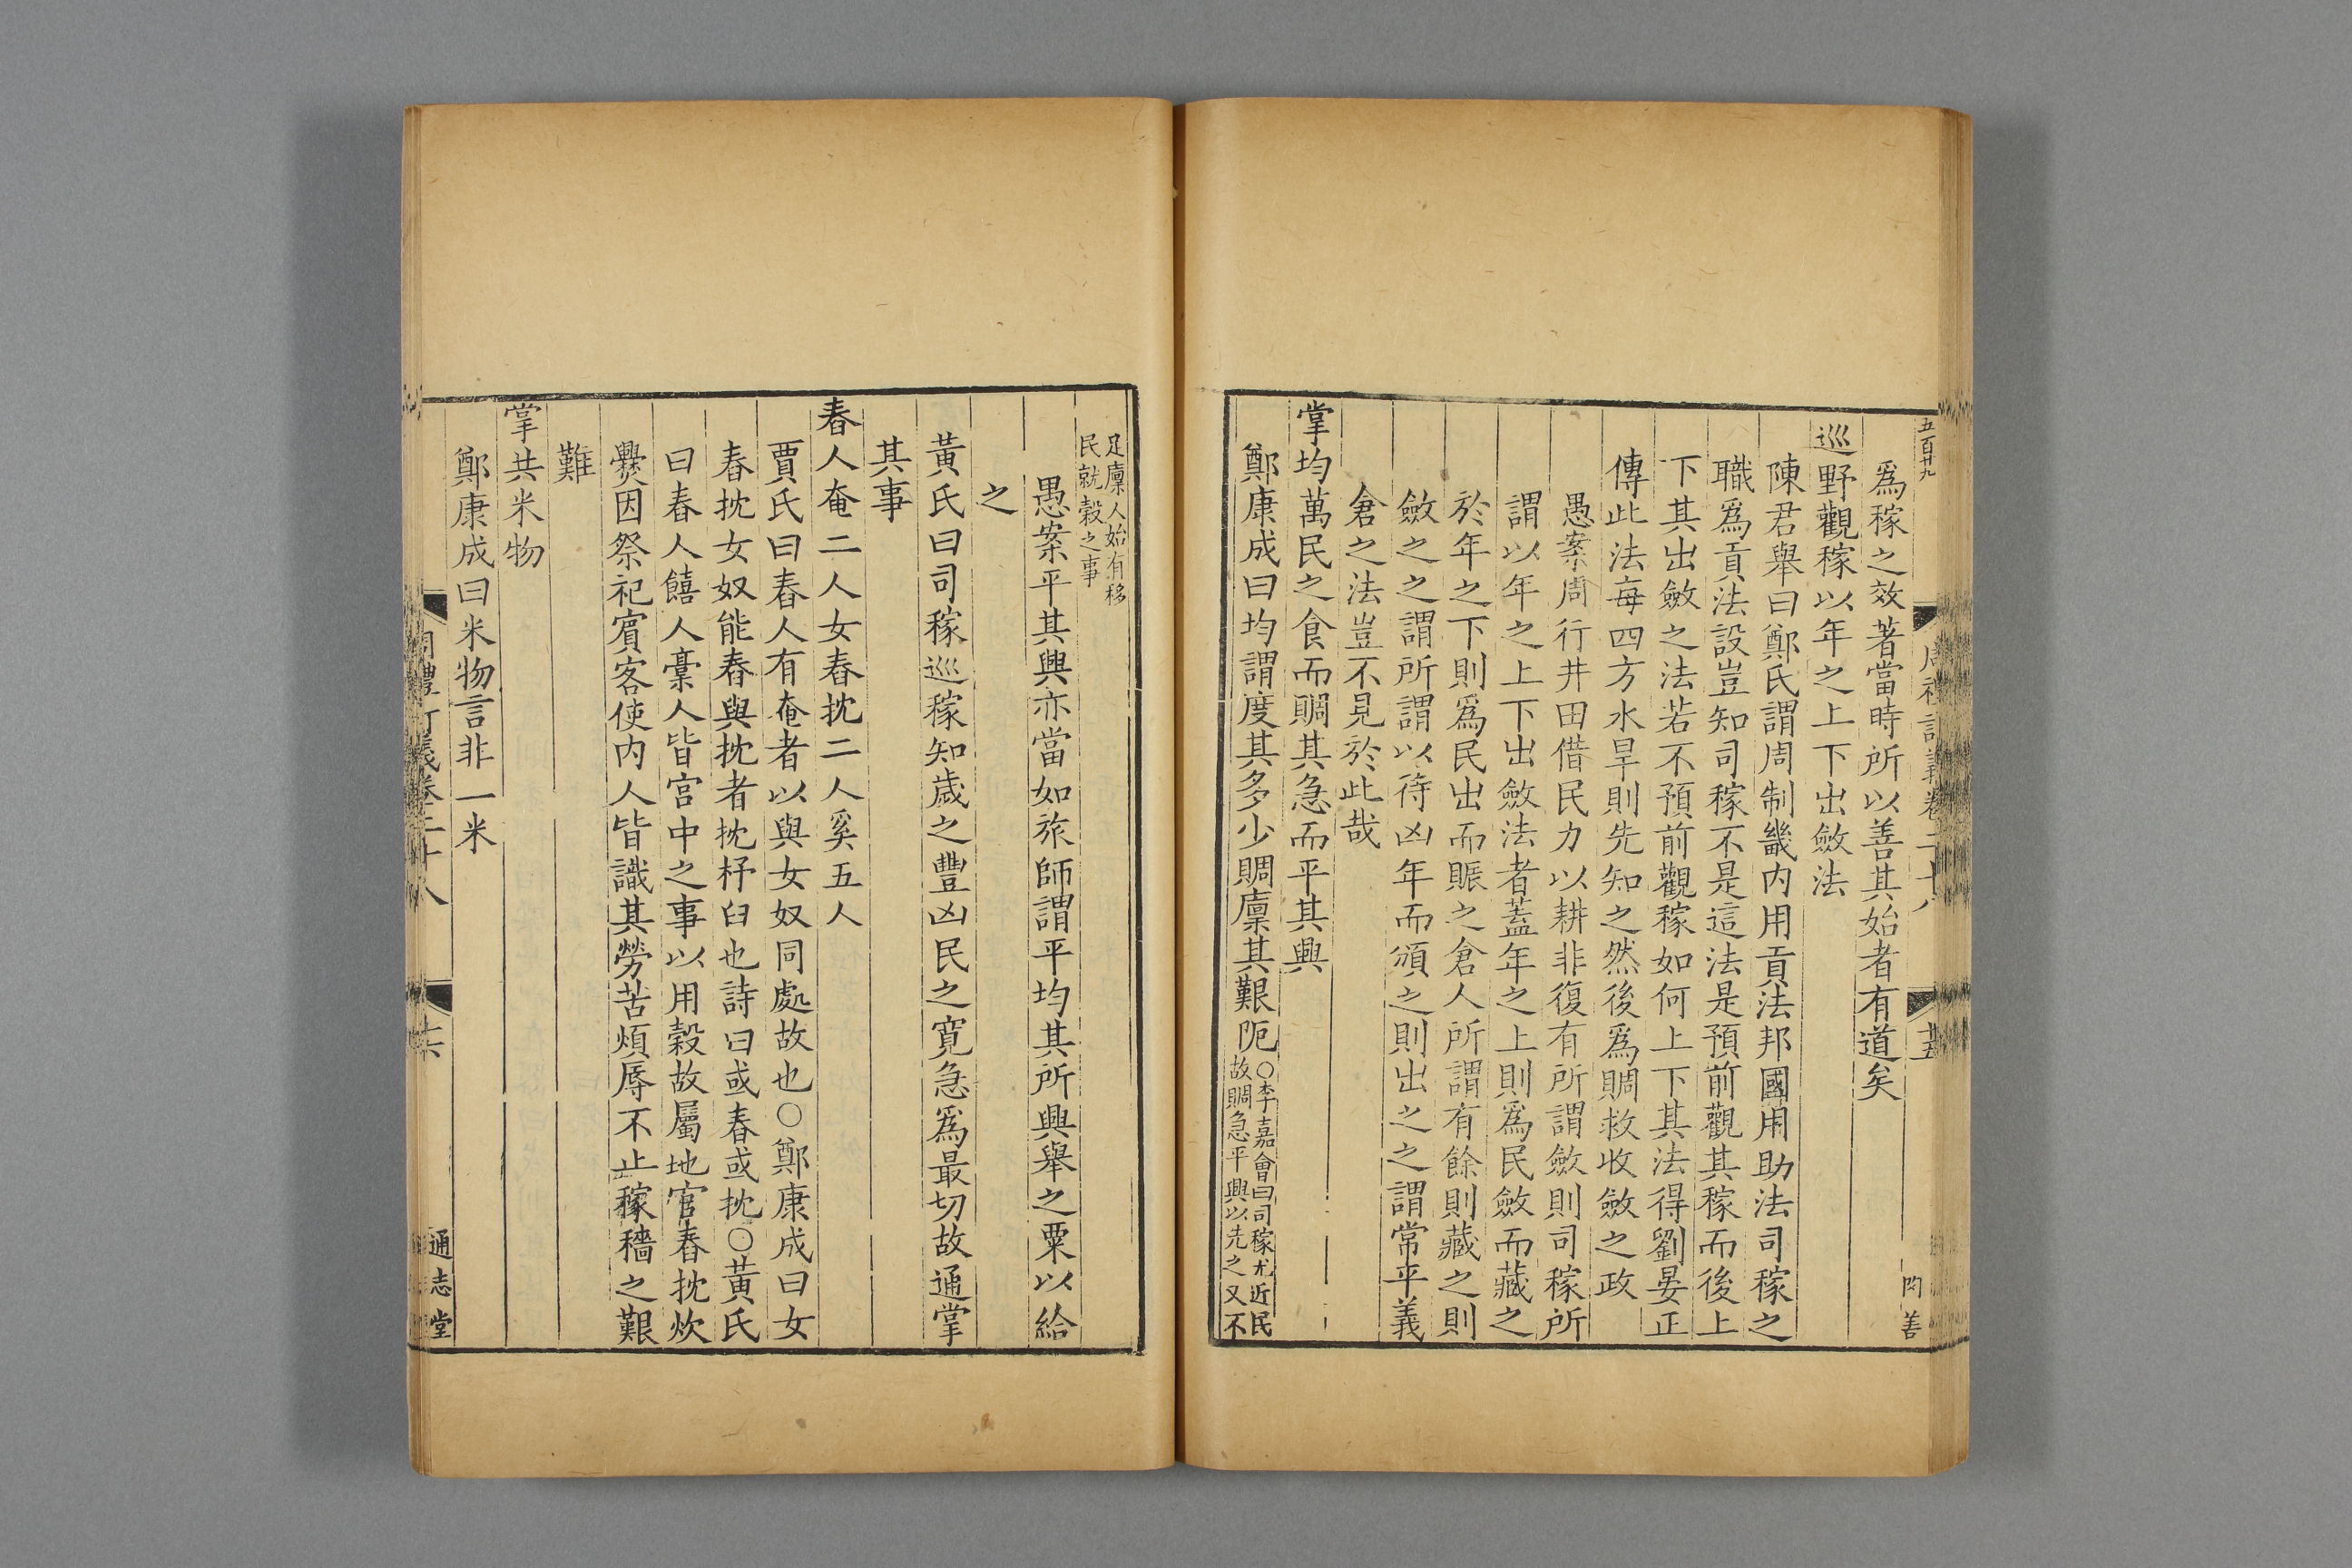 五百廿九
周禮訂義卷二十八
廿五
為稼之效著當時所以善其始者有道矣
巡野觀稼以年之上下出斂法
陳君舉曰鄭氏謂周制畿内用貢法邦國用助法司稼之
職為貢法設豈知司稼不是這法是預前觀其稼而後上
下其出斂之法若不預前觀稼如何上下其法得劉晏正
傳此法每四方水旱則先知之然後為賙救收斂之政
愚案周行井田借民力以耕非復有所謂斂則司稼所
謂以年之上下出斂法者蓋年之上則為民斂而藏之
於年之下則為民出而賑之倉人所謂有餘則藏之則
斂之之謂所謂以待凶年而頒之則出之之謂常平義
倉之法豈不見於此哉
掌均萬民之食而賙其急而平其興
鄭康成曰均謂度其多少賙廩其艱阨○李嘉會曰司稼尤近民
故賙急平興以先之又不
足廩人始有移
民就穀之事
愚案平其興亦當如旅師謂平均其所興舉之粟以給
之
黃氏曰司稼巡稼知歲之豐凶民之寬急為最切故通掌
其事
舂人奄二人女舂抌二人奚五人
賈氏曰舂人有奄者以與女奴同處故也○鄭康成曰女
舂抌女奴能舂與抌者抌杵臼也詩曰或舂或抌○黃氏
曰舂人饎人槀人皆宮中之事以用穀故屬地官舂抌炊
爨因祭祀賓客使内人皆識其勞苦煩辱不止稼穡之艱
難
掌共米物
鄭康成曰米物言非一米
周禮訂義卷二十八
通志堂